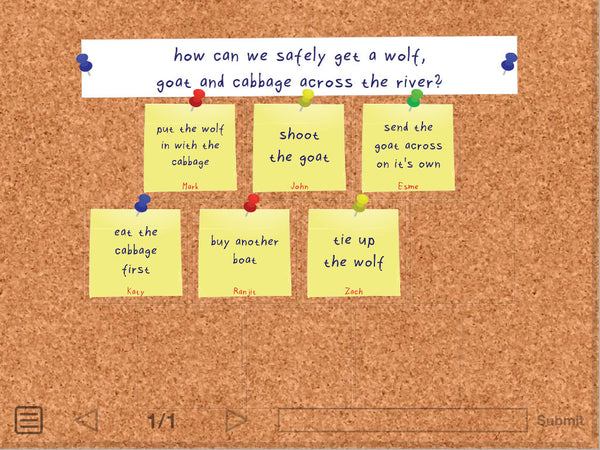 how can we safely get a wolf,
goat and cabbage across the river?
put the wolf
in with the
cabbage
Mark
shoot
the goat
John
send the
goat across
on it's own
Esme
eat the
cabbage
first
Katy
buy another
boat
Ranjit
tie up
the wolf
Zach
1/1
Submit